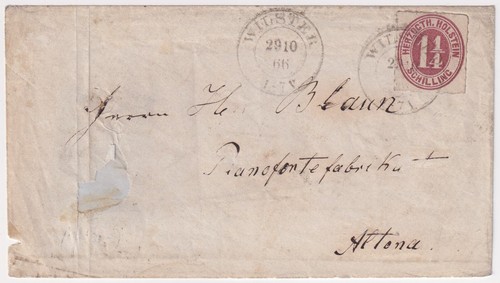 WILSTER
29 10
66
HERZOGTH. HOLSTEIN
1 1/4
SCHILLING
Herrn H. Blaun
Pianofortefabrikant
Altona.